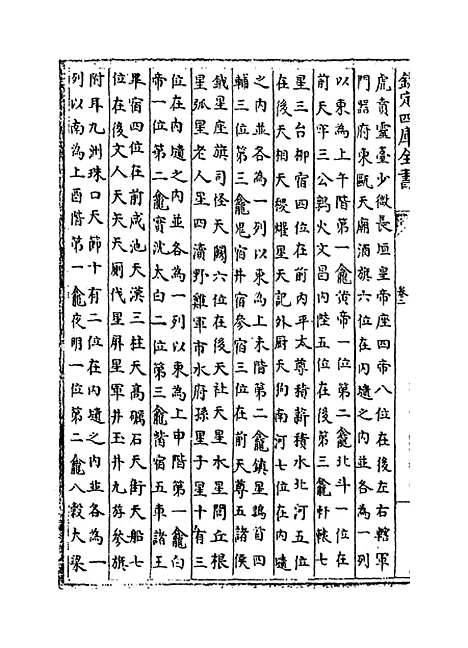 欽定四庫全書
卷二
虎賁靈臺少微長垣皇帝座四帝八位在後左右轄軍
門器府東甌天廟酒旗六位在內壝之內並各為一列
以東為上午階第一龕黃帝一位第二龕北斗一位在
前天牢三公鶉火文昌內陛五位在後第三龕軒轅七
星三台柳宿四位在前內平太尊積薪積水北河五位
在後天相天稷爟星天記外厨天狗南河七位在內壝
之內並各為一列以東為上未階第二龕鎮星鶉首四
輔三位第三龕鬼宿井宿參宿三位在前天尊五諸侯
鉞星座旗司怪天闕六位在後天社天星水星闕丘狼
星弧星老人星四瀆野雞軍市水府孫星子星十有三
位在內壝之內並各為一列以東為上申階第一龕白
帝一位第二龕實沈太白二位第三龕觜宿五車諸王
畢宿四位在前咸池天漢三柱天高礪石天街天船七
位在後文人天天天厠代星屏星軍井玉井九斿參旗
附耳九洲珠口天節十有二位在內壝之內並各為一
列以南為上酉階第一龕夜明一位第二龕八穀大梁